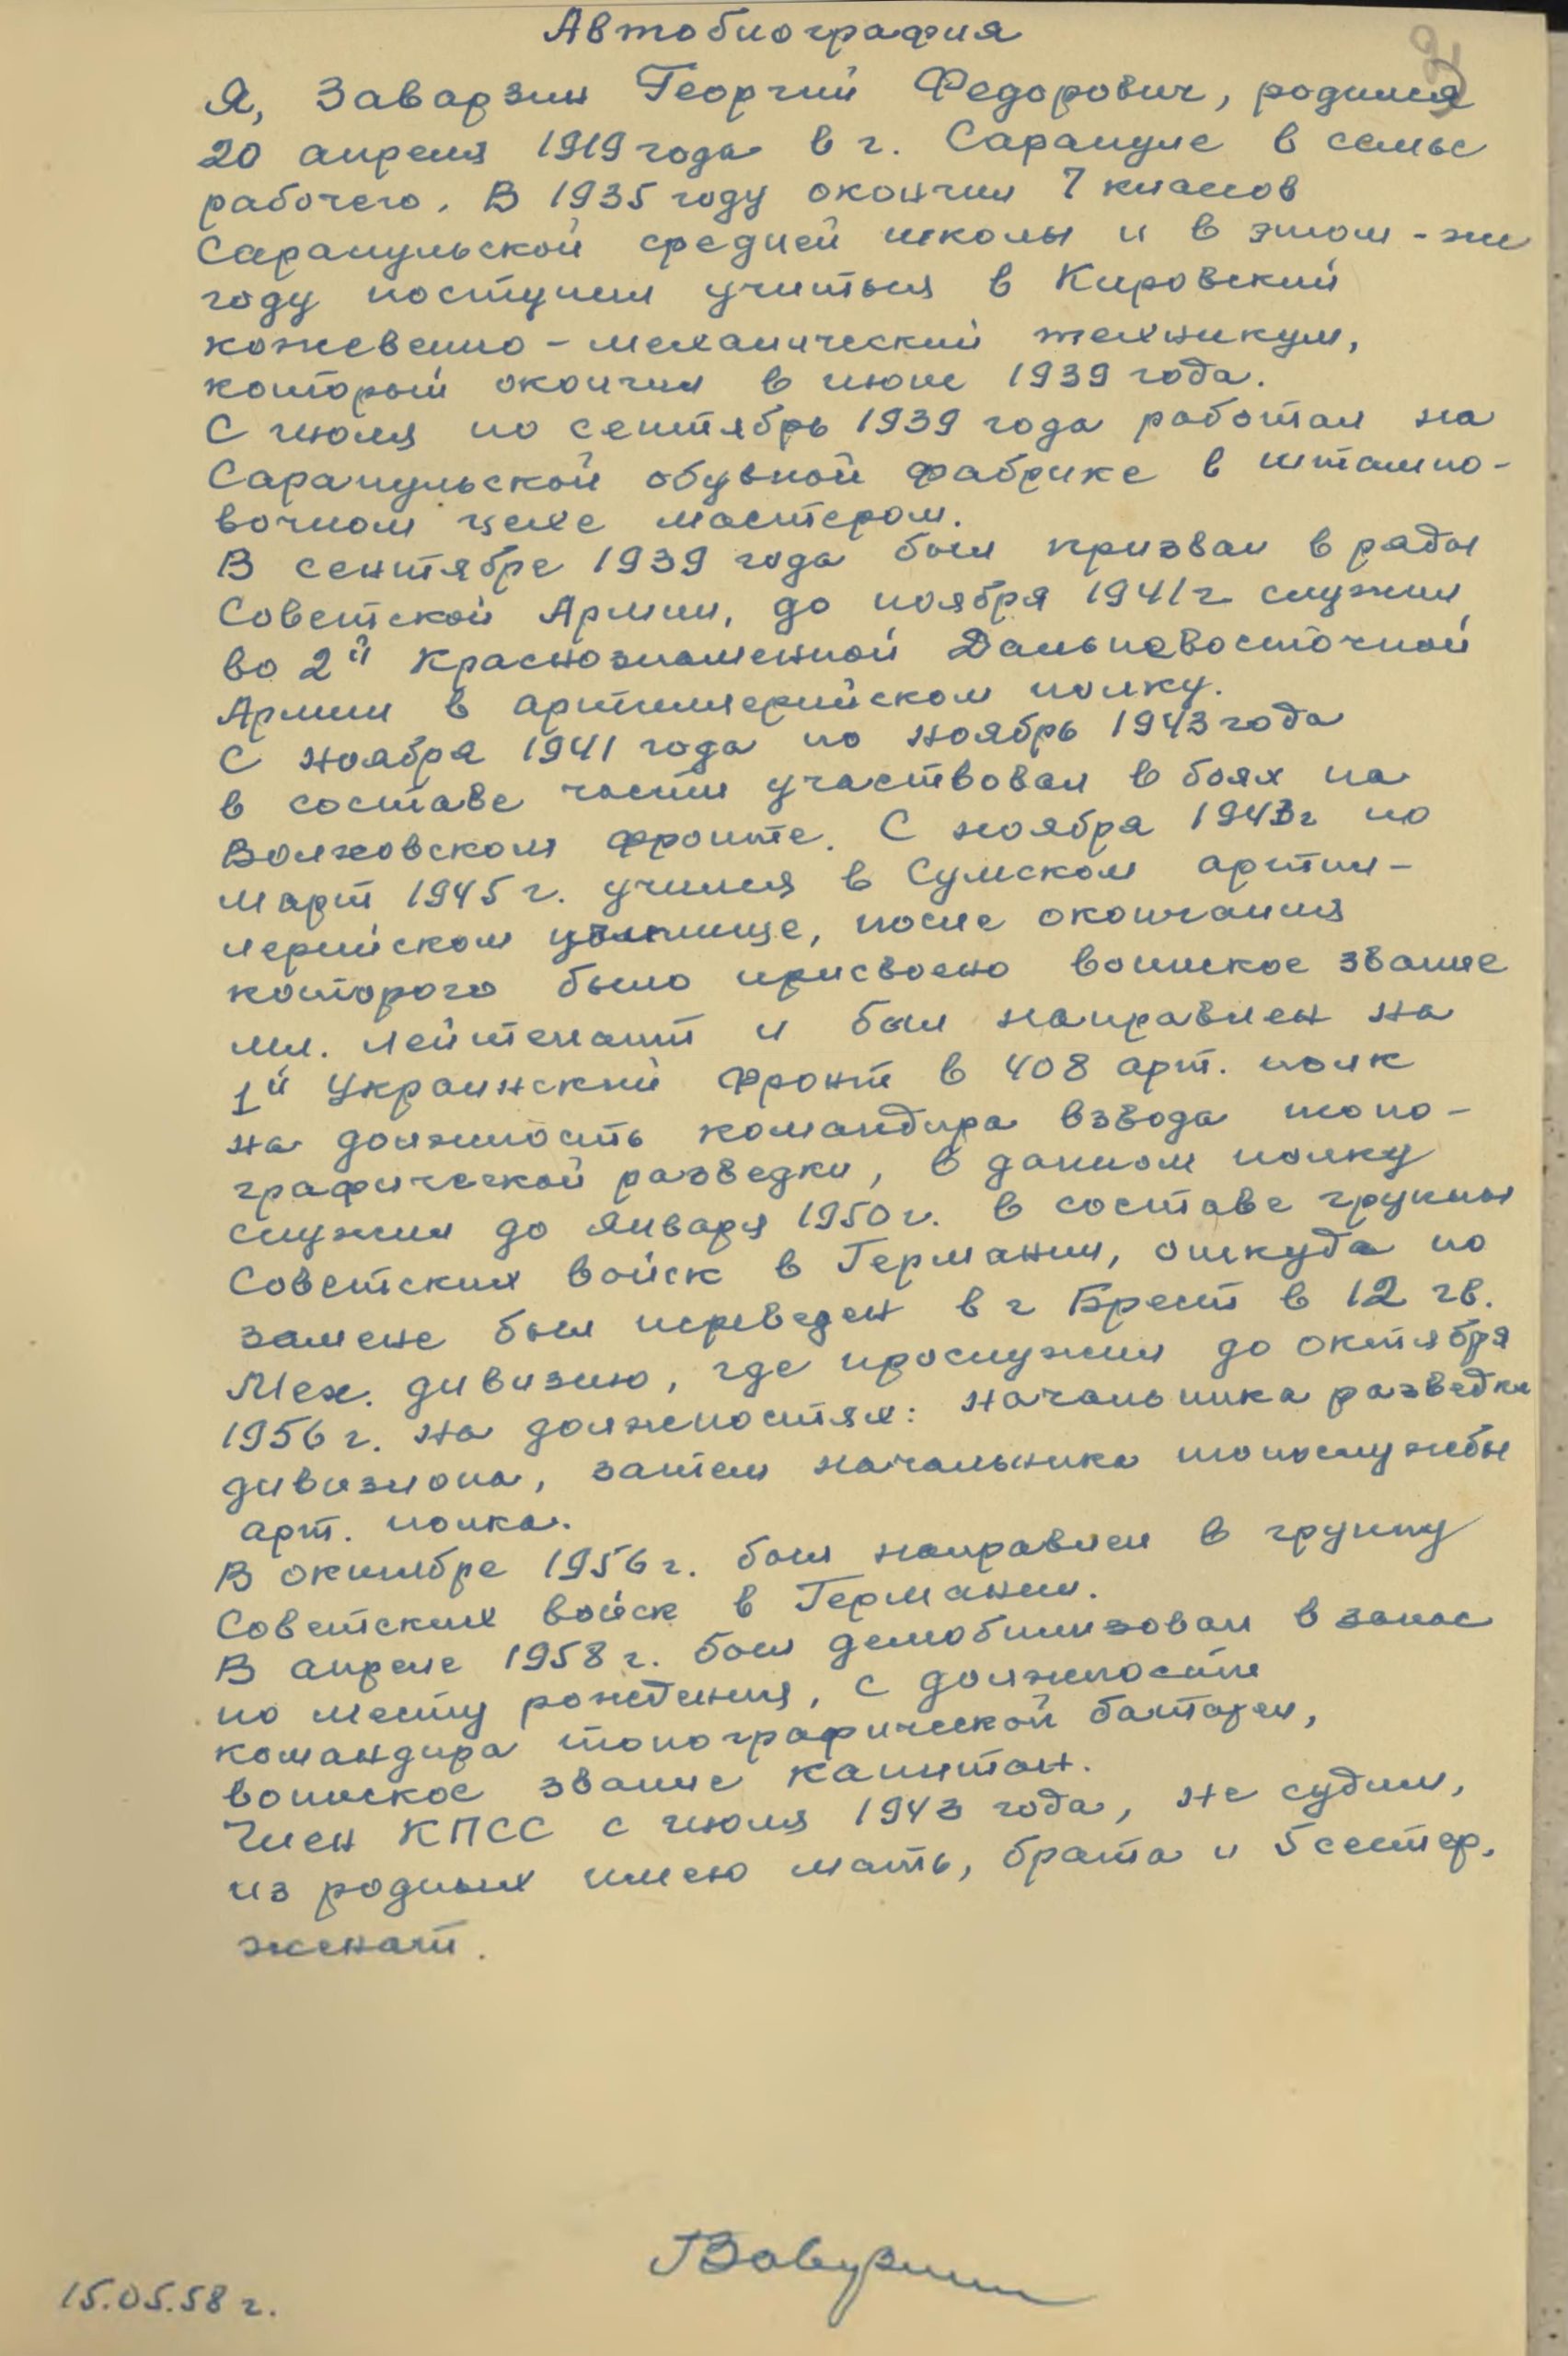 Автобиография
Я, Заварзин Георгий Федорович, родился
20 апреля 1919 года в г. Сарапуле в семье
рабочего. В 1935 году окончил 7 классов
Сарапульской средней школы и в этом-же
году поступил учиться в Кировский
кожевенно-механический техникум,
который окончил в июле 1939 года.
С июля по сентябрь 1939 года работал на
Сарапульской обувной фабрике в штампо-
вочном цехе мастером.
В сентябре 1939 года был призван в ряды
Советской Армии, до ноября 1941 г служил
во 2й Краснознаменной Дальневосточной
Армии в артиллерийском полку.
С ноября 1941 года по ноябрь 1943 года
в составе части участвовал в боях на
Волховском фронте. С ноября 1943 г по
март 1945 г. учился в Сумском артил-
лерийском училище, после окончания
которого было присвоено воинское звание
мл. лейтенант и был направлен на
1й Украинский фронт в 408 арт. полк
на должность командира взвода топо-
графической разведки, в данном полку
служил до января 1950 г. в составе группы
Советских войск в Германии, откуда по
замене был переведен в г Брест в 12 гв.
Мех. дивизию, где прослужил до октября
1956 г. на должностях: начальника разведки
дивизиона, затем начальника топослужбы
арт. полка.
В октябре 1956 г. был направлен в группу
Советских войск в Германии.
В апреле 1958 г. был демобилизован в запас
по месту рождения, с должности
командира топографической батареи,
воинское звание капитан.
Член КПСС с июля 1943 года, не судим,
из родных имею мать, брата и 5 сестер.
женат.
ГЗаварзин
15.05.58 г.